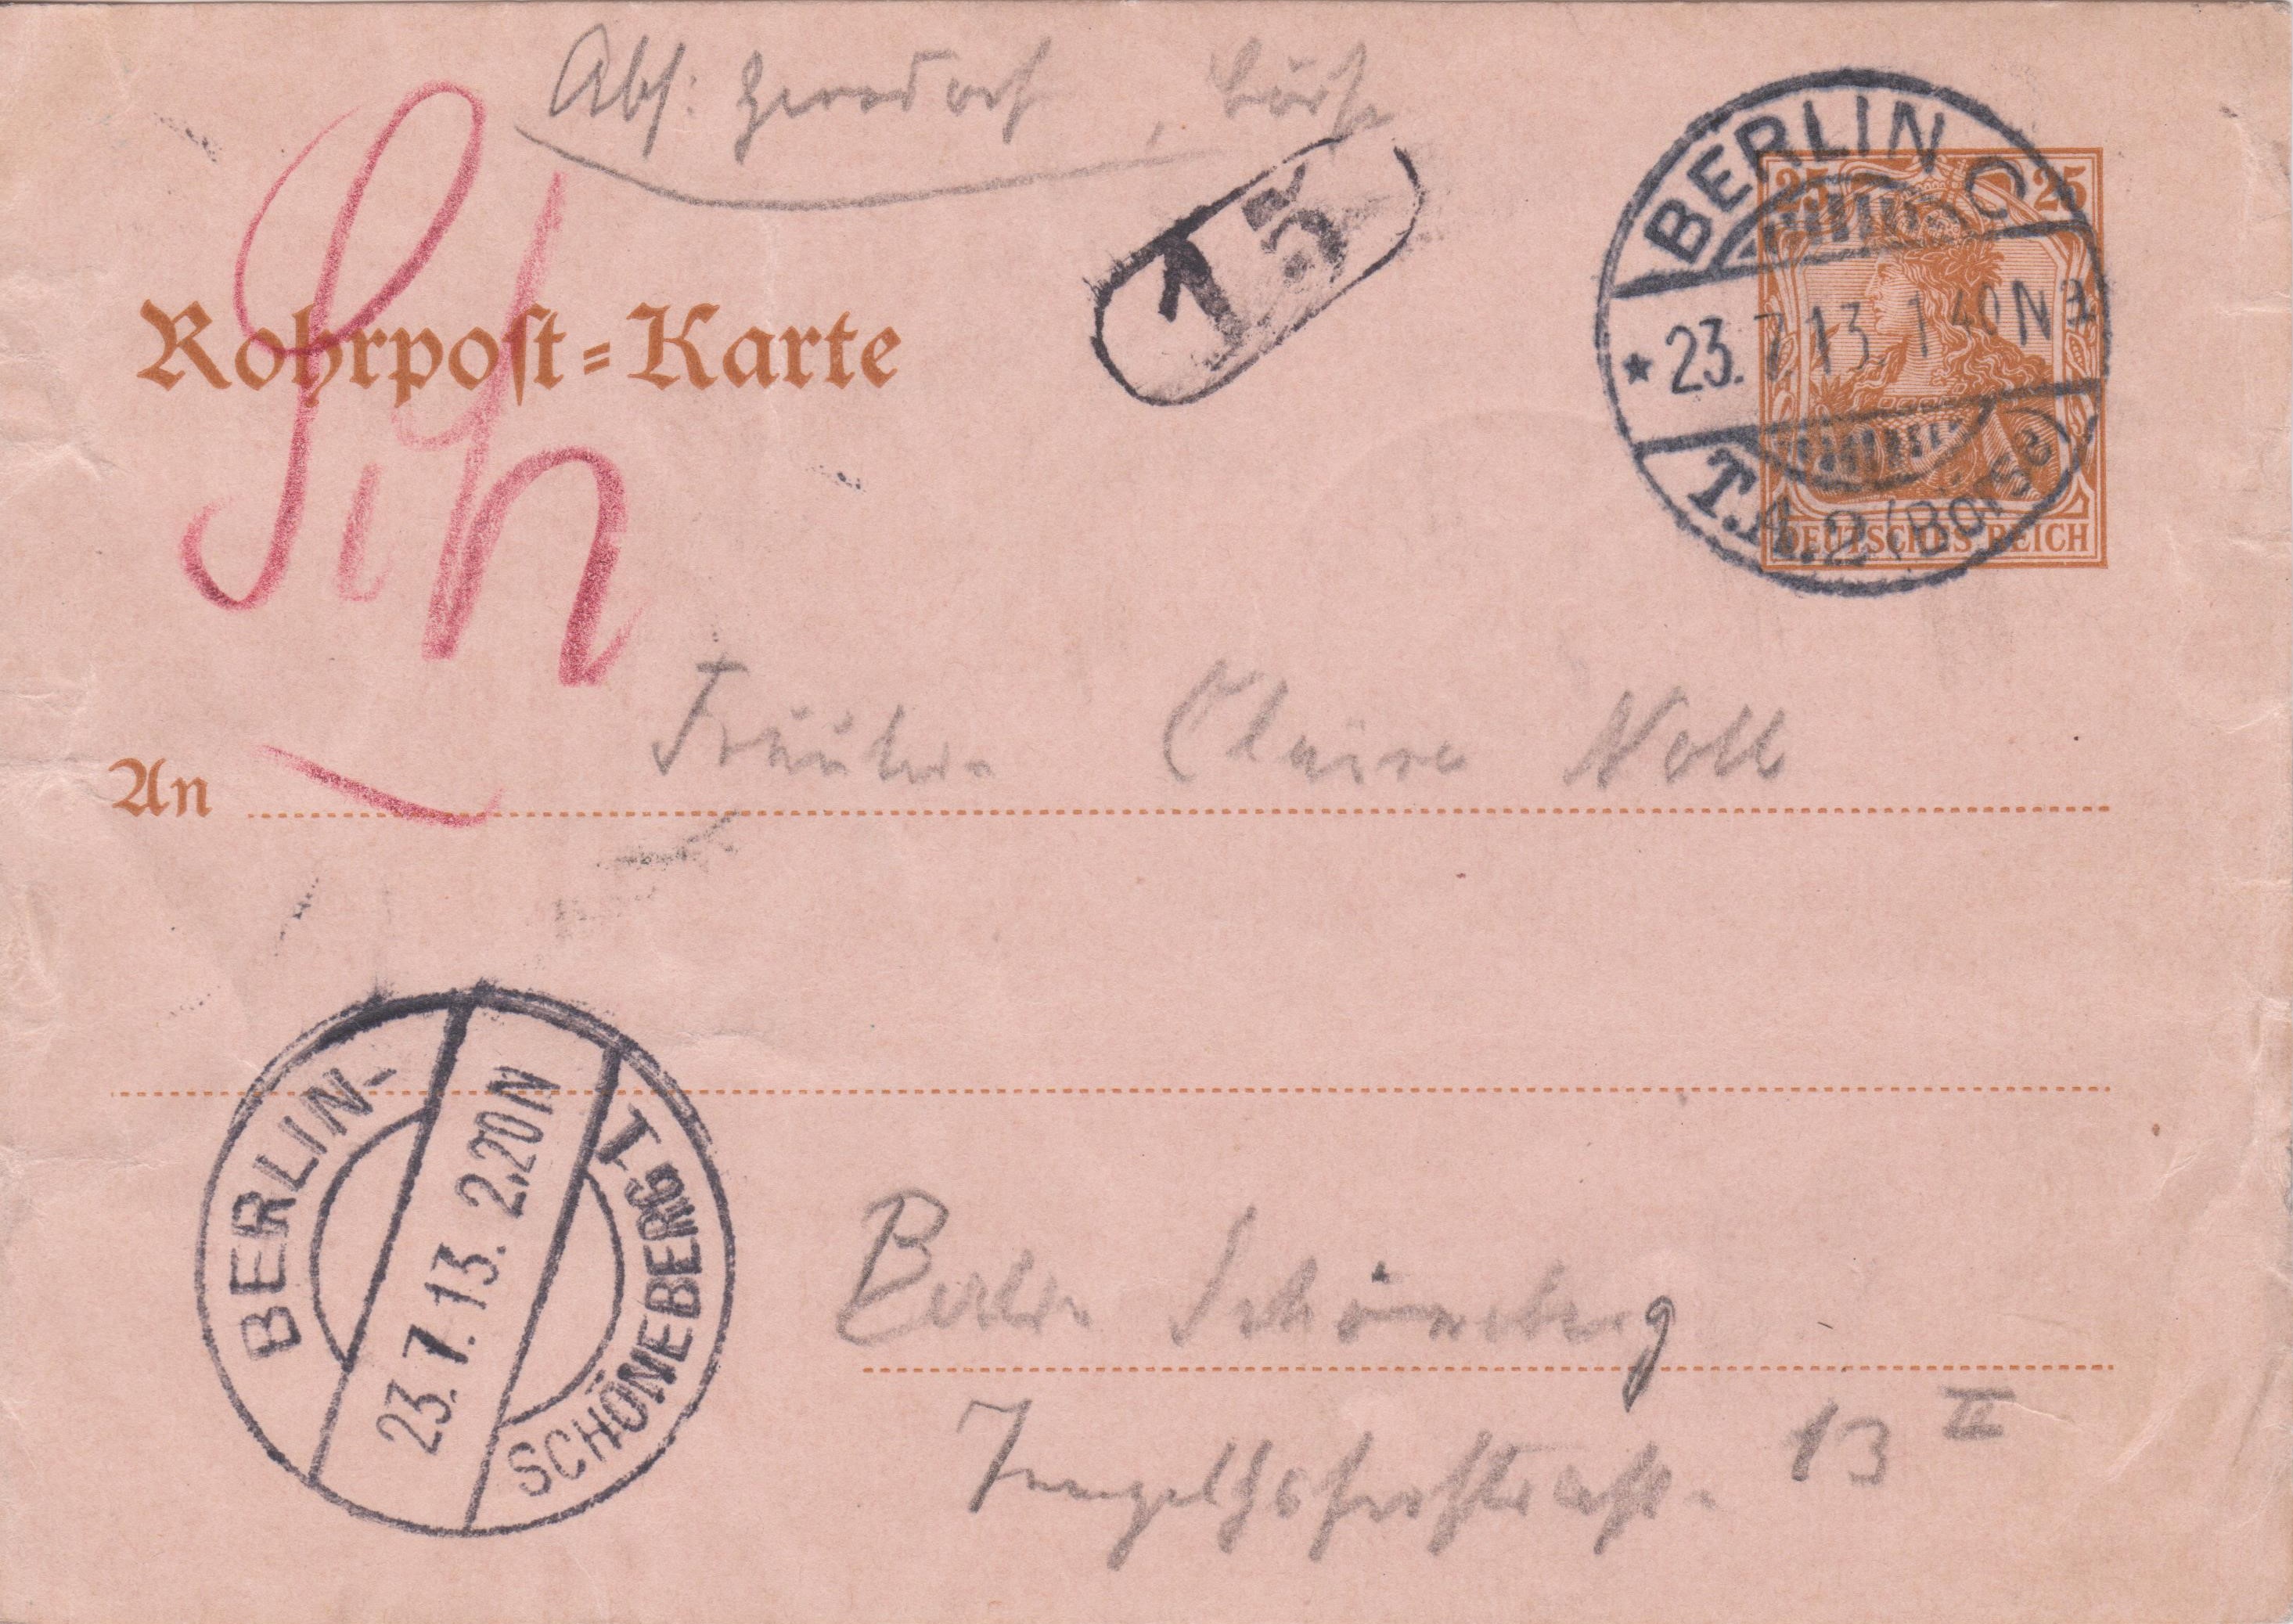 Abs: Börse
15
BERLIN C
25 25
* 23.7.13. 1 40 N
T.A. 2 (Börse)
DEUTSCHES REICH
Sch
Rohrpost-Karte
An Fräulein Claire Noll
BERLIN-
23.7.13. 2.20 N
SCHÖNEBERG 1
Berlin Schöneberg
13 II